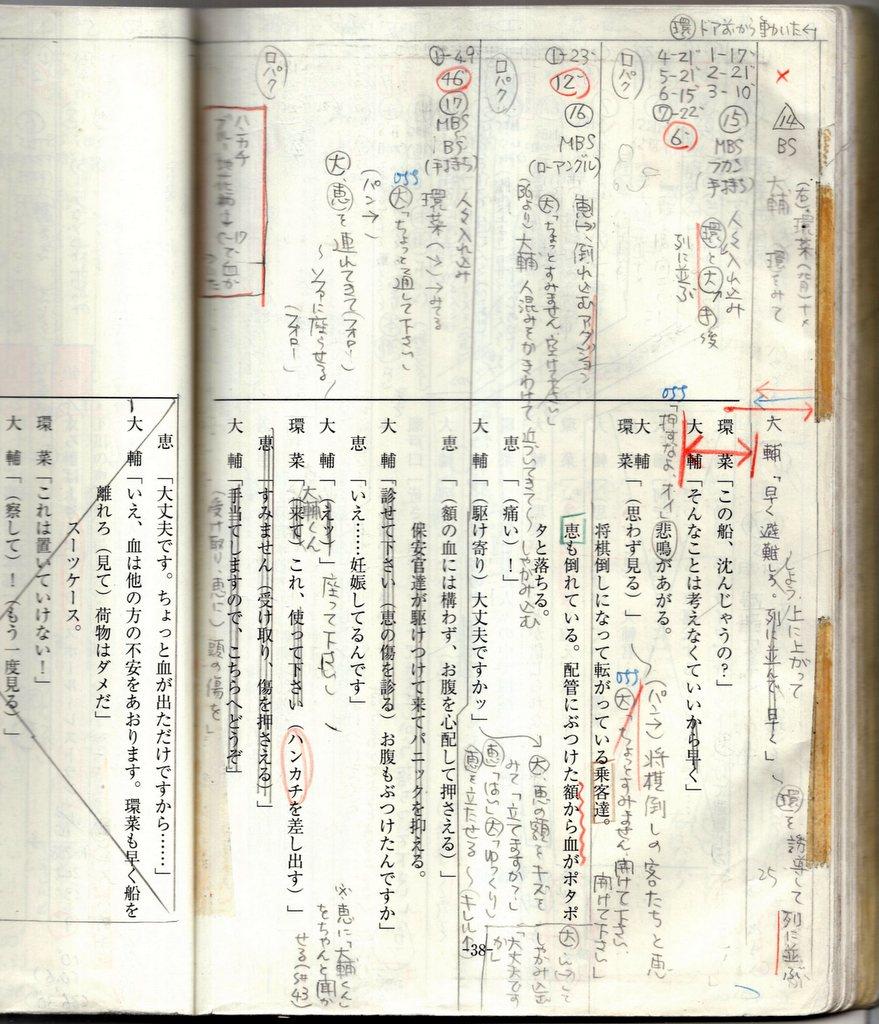 環 ドアおから動いた←
14
BS
大輔
環をみて
(右)環菜(背)ナメ
大輔「早く避難しろ。列に並んで、早く」
しよう、上に上がって
環を誘導して
列に並ぶ
25
1-17"
2-21"
3-10"
4-21"
5-21"
6-15"
7-22"
6"
15
MBS
フカン
手持ち
ロパク
人々入れ込み
環と大→キ後
列に並ぶ
環 菜「この船、沈んじゃうの?」
大 輔「そんなことは考えなくていいから早く」
OSS
「押すなよ、オイ」
悲鳴があがる。
大 輔
環 菜「(思わず見る)」
(パン→)将棋倒しの客たちと恵
OSS
大「ちょっとすみません、開けて下さい、
開けて下さい」
将棋倒しになって転がっている乗客達。
①-23"
12"
16
MBS
(ローアングル)
ロパク
恵、倒れ込むアクション
大「ちょっとすみません、空けて下さい」
大輔 人混みをかきわけて近づいてきて〜しゃがみ込む
恵も倒れている。配管にぶつけた額から血がポタポ
タと落ちる。
恵「(痛い)!」
大 輔「(駆け寄り)大丈夫ですかッ」
大、恵の額をキズを
みて「立てますか?」
恵「はい」大「ゆっくり」
恵を立たせる〜(キレル↑)
しゃがみ込む
「大丈夫です
か」
①-49
46"
17
MBS
BS
(手持ち)
ロパク
人々入れ込み
環菜(→)→みてる
OSS
大「ちょっと通して下さい」
(パン→)
大、恵を連れてきて(フォロー)
〜ソファに座らせる
(フォロー)
恵「(額の血には構わず、お腹を心配して押さえる)」
保安官達が駆けつけて来てパニックを抑える。
大 輔「診せて下さい(恵の傷を診る)お腹もぶつけたんですか」
恵「いえ……妊娠してるんです」
大 輔「(えッ)」
座って下さい」
大輔くん
環 菜「(来て)これ、使って下さい(ハンカチを差し出す)」
※恵に「大輔くん」
をちゃんと聞か
せる(S#43)
恵「すみません(受け取り、傷を押さえる)」
大 輔「手当てしますので、こちらへどうぞ」
(受け取り、恵に)頭の傷を」
ハンカチ
-38-
恵「大丈夫です。ちょっと血が出ただけですから……」
大 輔「いえ、血は他の方の不安をあおります。環菜も早く船を
離れろ(見て)荷物はダメだ」
スーツケース。
環 菜「これは置いていけない!」
大 輔「(察して)!(もう一度見る)」